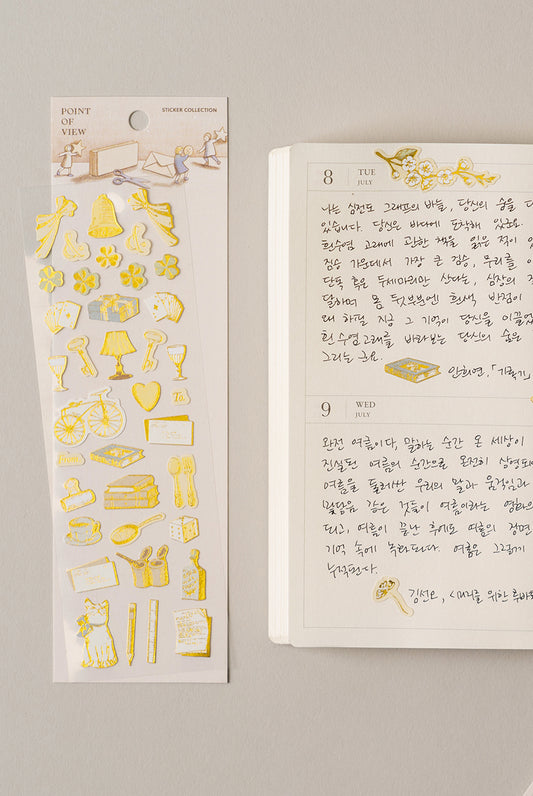 POINT
OF
VIEW
STICKER COLLECTION
8
TUE
JULY
나는 심전도 그래프의 바늘, 당신의 숨을
있습니다. 당신은 바다에 도착해 있군요.
흰수염 고래에 관한 책을 읽은 적이
짐승 가운데서 가장 큰 짐승, 무리를
단독 혹은 두세마리만 산다는, 심장의
달하며 몸 뒷부분엔 흰색 반점이
왜 하필 지금 그 기억이 당신을 이끌었
흰수염고래를 바라보는 당신의 숨은
그리는 군요.
안희연, 「기록기」
9
WED
JULY
완전 여름이다, 말하는 순간 온 세상이
진실된 여름의 순간으로 온전히 상영되
여름을 둘러싼 우리의 말과 움직임과
맞닿음 같은 것들이 여름이라는 영화의
되고, 여름이 끝난 후에도 여름의 장면
기억 속에 녹화된다. 여름은 그렇게
누적된다.
김선오, <미래를 위한